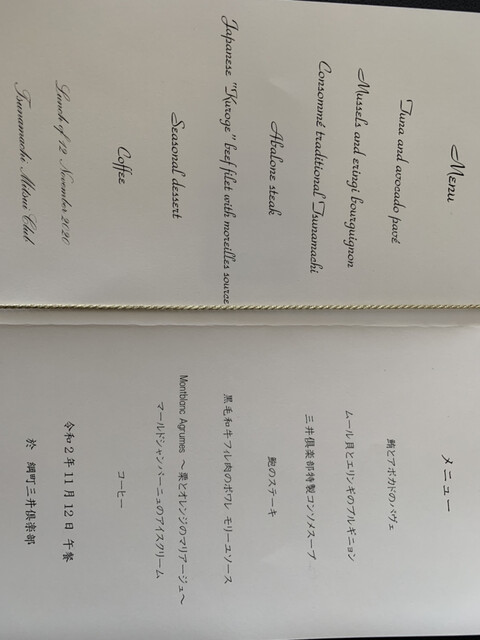 Menu
Tuna and avocado pavé
Mussels and eringi bourguignon
Consommé traditional Tsunamachi
Abalone steak
Japanese "Kuroge" beef filet with moreilles source
Seasonal dessert
Coffee
Lunch of 12 November 2020
Tsunamachi Mitsui Club
メニュー
鮪とアボカドのパヴェ
ムール貝とエリンギのブルギニョン
三井倶楽部特製コンソメスープ
鮑のステーキ
黒毛和牛フィレ肉のポワレ モリーユソース
Montblanc Agrumes ～栗とオレンジのマリアージュ～
マールドシャンパーニュのアイスクリーム
コーヒー
令和2年11月12日 午餐
於 綱町三井倶楽部